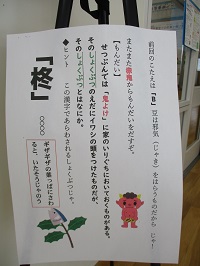 前回のこたえは「B」豆は邪気(じゃき)をはらうものだから じゃ!
またまた赤鬼からもんだいをだすぞ。
【もんだい】
せつぶんでは「鬼よけ」に家のいりぐちにおいておくものがある。
そのしょくぶつのえだにイワシの頭をつけたものだが、
そのしょくぶつとはなにか。
◆ヒント この漢字であらわされるしょくぶつじゃ。
「柊」
○○○○
ギザギザの葉っぱにさわ
ると、いたそうじゃのう